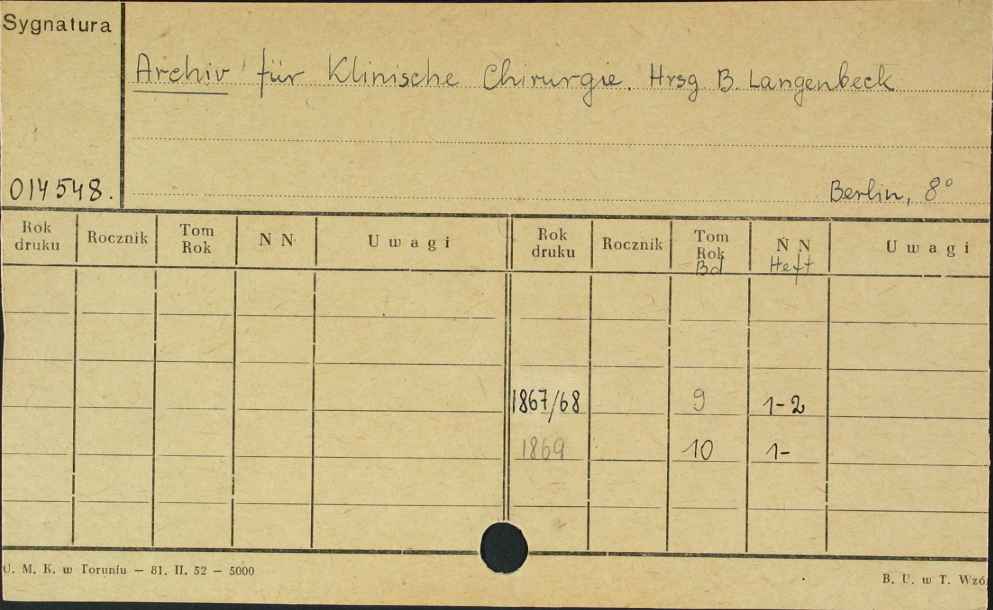 Sygnatura
Archiv für Klinische Chirurgie. Hrsg B. Langenbeck
014548.
Berlin, 8°
Rok druku Rocznik Tom Rok N N Uwagi Rok druku Rocznik Tom Rok Bd N N Heft Uwagi
1867/68 9 1-2
1869 10 1-
U. M. K. w Toruniu — 81. II. 52 — 5000
B. U. w T. Wzór